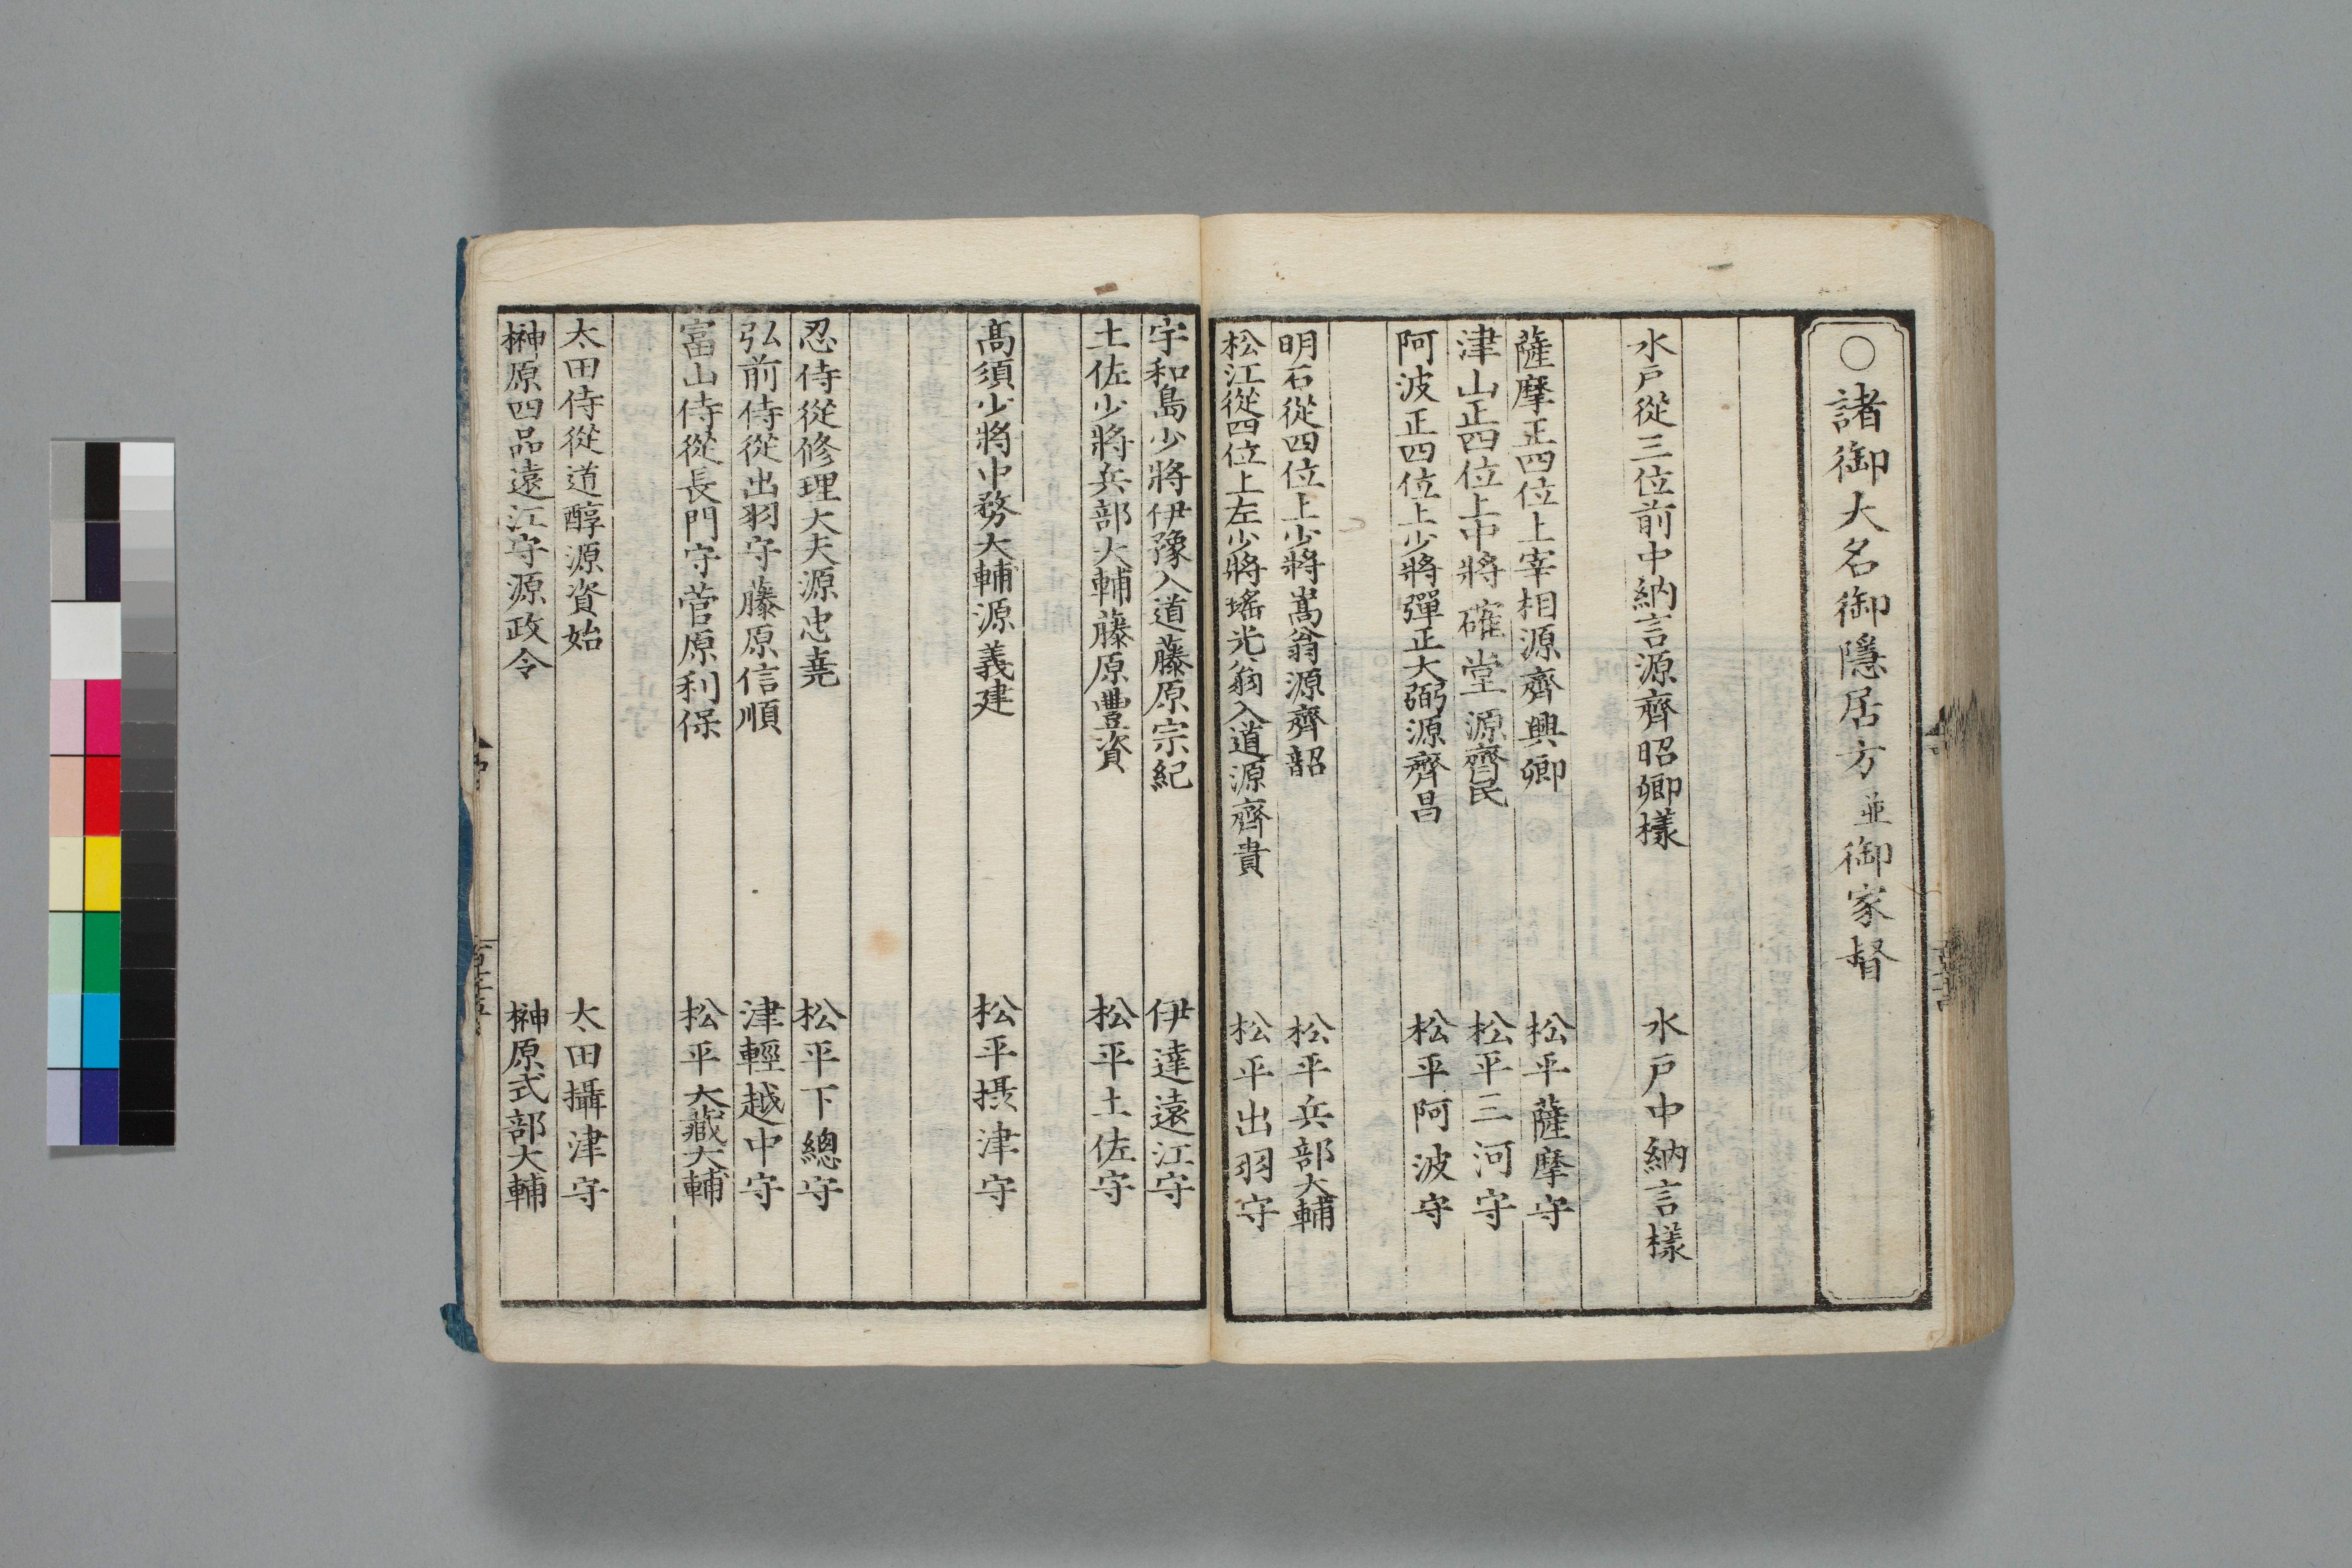 〇諸御大名御隱居方並御家督
水戸從三位前中納言源齊昭卿樣　水戸中納言樣
薩摩正四位上宰相源齊興卿　松平薩摩守
津山正四位上中將確堂源齊民　松平三河守
阿波正四位上少將彈正大弼源齊昌　松平阿波守
明石從四位上少將嵩翁源齊韶　松平兵部大輔
松江從四位上左少將瑤光翁入道源齊貴　松平出羽守
宇和島少將伊豫入道藤原宗紀　伊達遠江守
土佐少將兵部大輔藤原豐資　松平土佐守
髙須少將中務大輔源義建　松平摂津守
忍侍從修理大夫源忠堯　松平下總守
弘前侍從出羽守藤原信順　津輕越中守
富山侍從長門守菅原利保　松平大藏大輔
太田侍從道醇源資始　太田攝津守
榊原四品遠江守源政令　榊原式部大輔